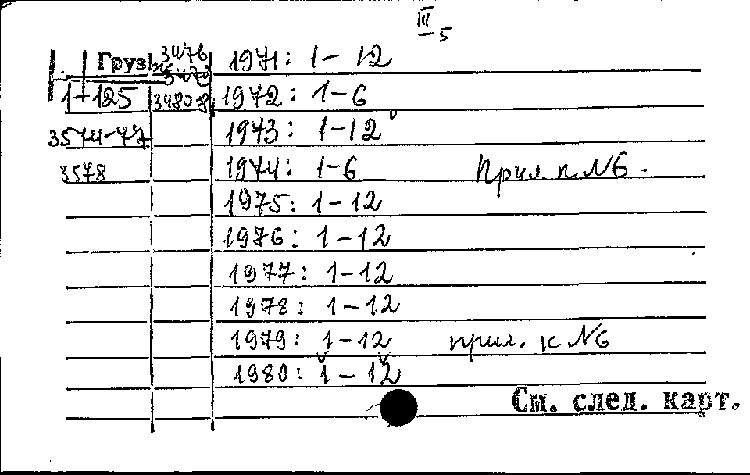 III
5
Груз 3476 1971: 1-12
1-125 34808 1972: 1-6
3574-77 1973: 1-12
3578 1974: 1-6 Прил. к №6.
1975: 1-12
1976: 1-12
1977: 1-12
1978: 1-12
1979: 1-12 прил. к №6
1980: 1-12
См. след. карт.